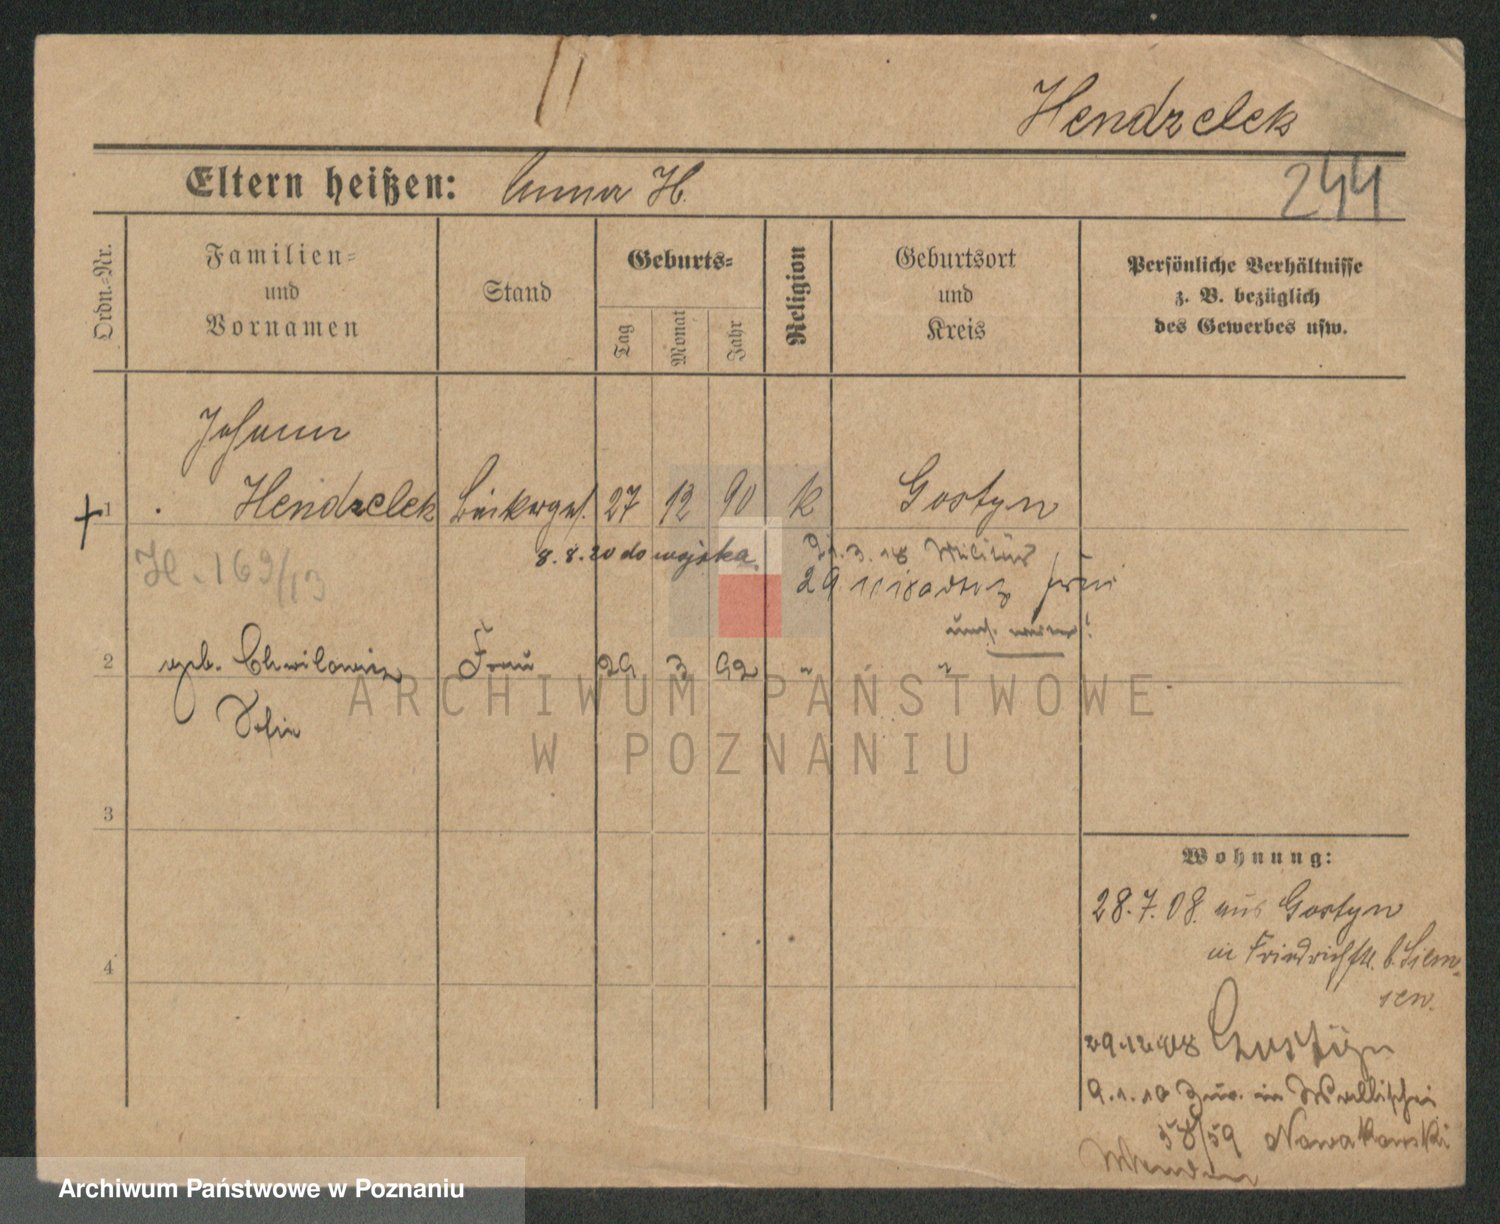 Hendzelek
Eltern heißen: Anna H.
244
Ordn.-Nr.
Familien-
und
Vornamen
Stand
Geburts-
Tag
Monat
Jahr
Religion
Geburtsort
und
Kreis
Persönliche Verhältnisse
z. B. bezüglich
des Gewerbes usw.
Johann
1 Hendzelek Bäckerges. 27 12 90 k Gostyn
8.8.20 do wojska.
21.3.18 Militär
H. 169/13
2 geb. Chwilowicz Frau 29 3 92 " "
Sofie
3
4
Wohnung:
28.7.08. aus Gostyn
in Friedrichstr. b. Siem-
sen.
29.12.08 Gostyn
9.1.10 Zur. in Wallischei
58/59 Nowakowski
ARCHIWUM PAŃSTWOWE
W POZNANIU
Archiwum Państwowe w Poznaniu